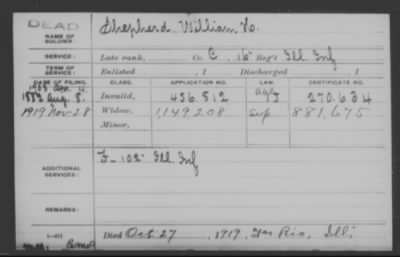 DEAD
NAME OF SOLDIER: Shepherd, William
SERVICE: Late rank, Co. C, 16" Reg't Ill. Inf
TERM OF SERVICE: Enlisted , 1 Discharged , 1
DATE OF FILING. CLASS. APPLICATION NO. LAW. CERTIFICATE NO.
1908
1882 Aug. 8. Invalid, 456.812 270.634
1919 Nov 28 Widow, 1,149,208 881,675
Minor,
ADDITIONAL SERVICES: F-102" Ill. Inf
REMARKS:
Died Oct 27, 1919, Rio, Ill;